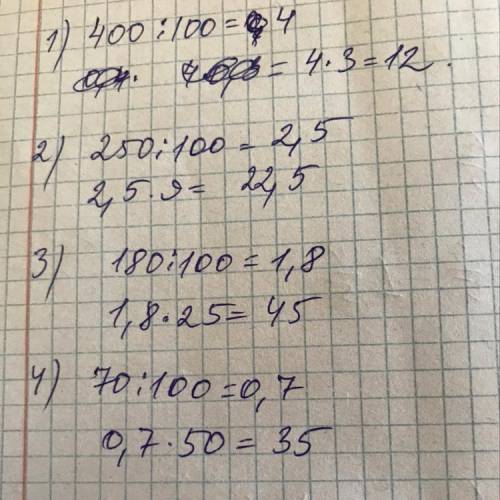 1) 400:100=4
= 4·3=12.
2) 250:100=2,5
2,5·9= 22,5
3) 180:100=1,8
1,8·25=45
4) 70:100=0,7
0,7·50=35